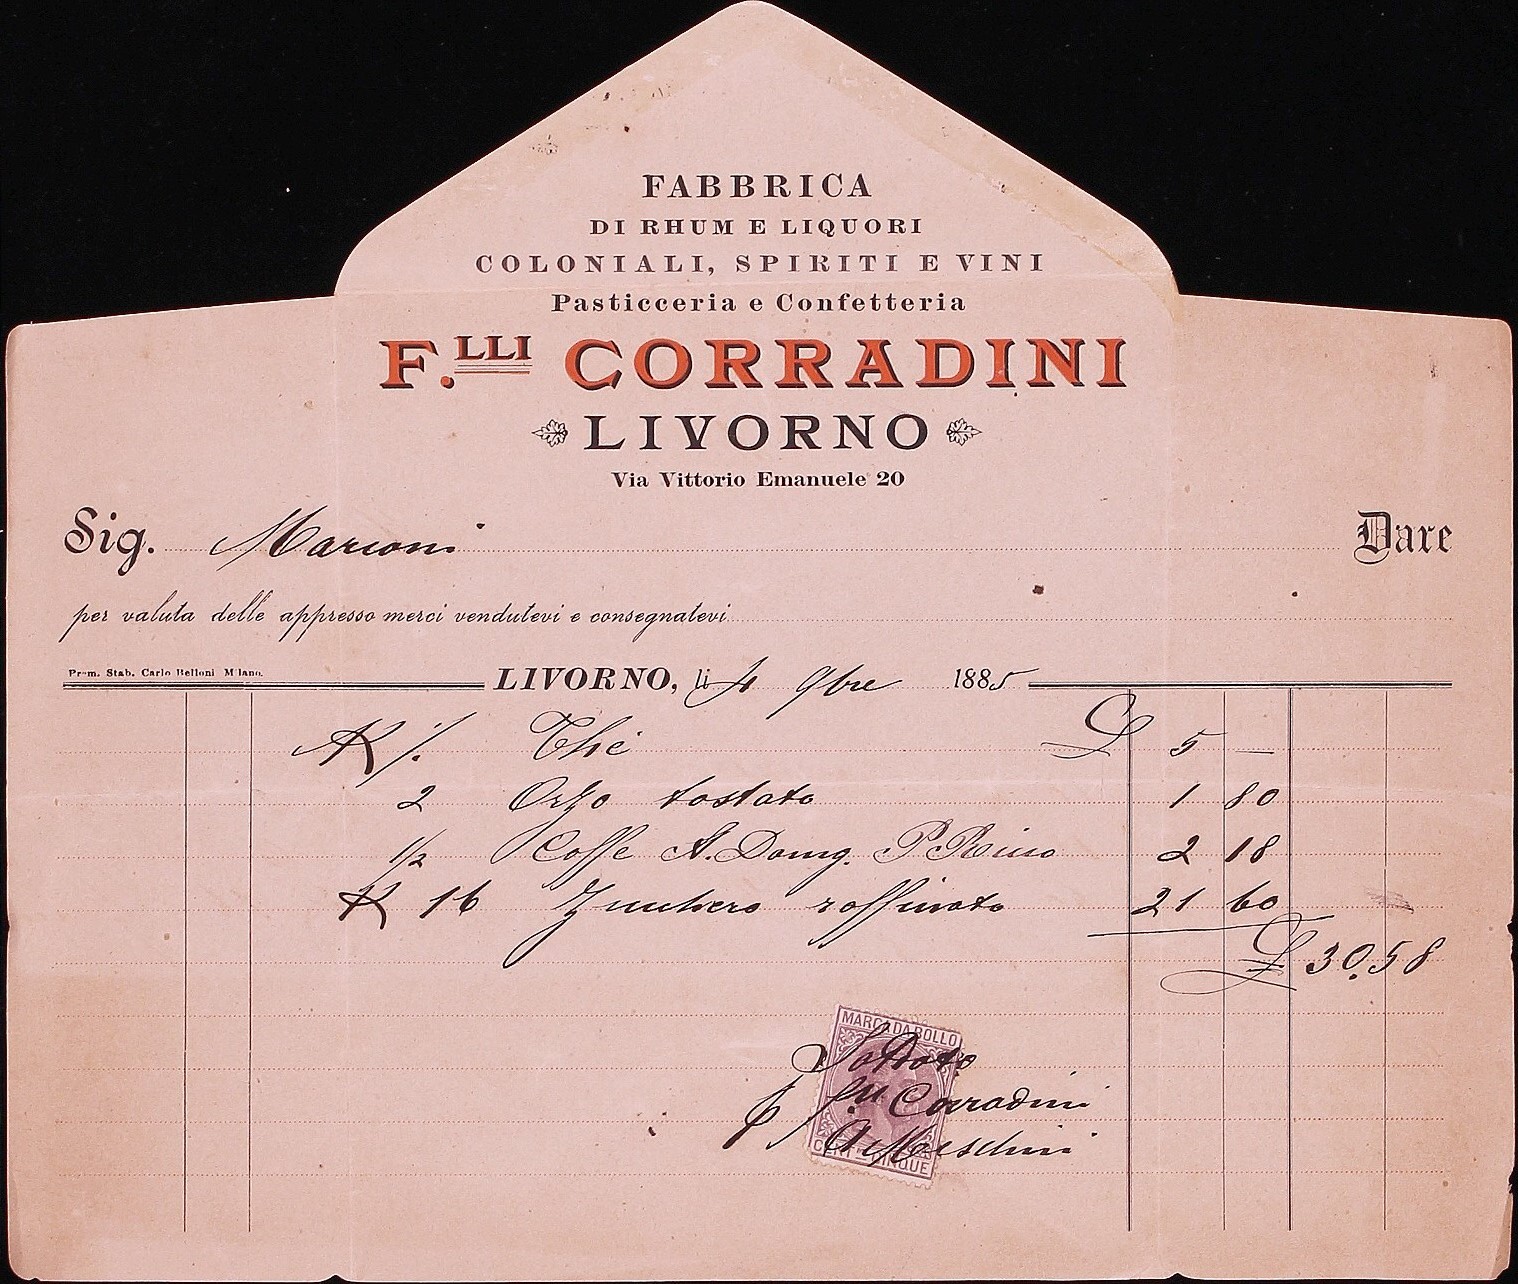 FABBRICA
DI RHUM E LIQUORI
COLONIALI, SPIRITI E VINI
Pasticceria e Confetteria
F.LLI CORRADINI
LIVORNO
Via Vittorio Emanuele 20
Sig. Marconi Dare
per valuta delle appresso merci vendutevi e consegnatevi
Prem. Stab. Carlo Belloni Milano.
LIVORNO, li 4 9bre 1885
K Thé £ 5 —
2 Orzo tostato 1 80
1/2 Caffe S. Domg. P. Rico 2 18
K 16 Zucchero raffinato 21 60
£ 30.58
MARCA DA BOLLO
Saldato
p f.lli Corradini
A Meschini
CENT. CINQUE